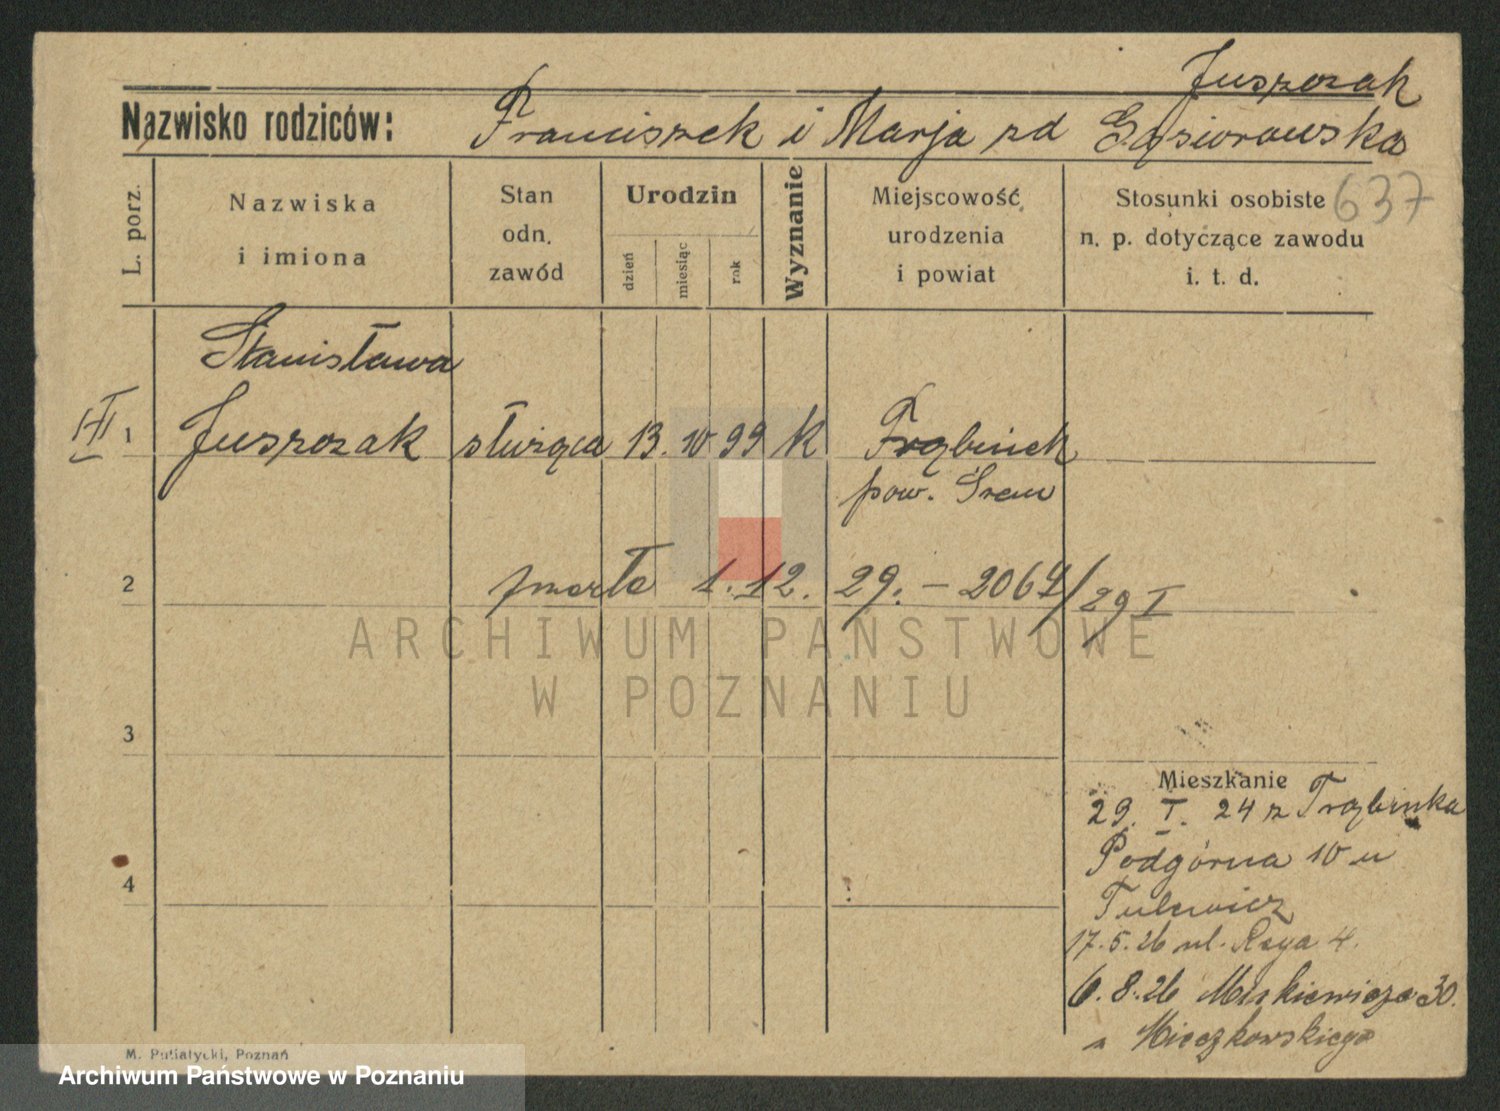 Juszczak
Nazwisko rodziców: Franciszek i Marja zd Gąsiorowska
637
L. porz.
Nazwiska
i imiona
Stan
odn.
zawód
Urodzin
dzień
miesiąc
rok
Wyznanie
Miejscowość
urodzenia
i powiat
Stosunki osobiste
n. p. dotyczące zawodu
i. t. d.
Stanisława
III 1 Juszczak służąca 13. 10 99 K Trąbinek
pow. Śrem
2 zmarła 1. 12. 29. – 2064/29 I
ARCHIWUM PAŃSTWOWE
W POZNANIU
3
Mieszkanie
29. I. 24 z Trąbinka
4 Podgórna 10 u
17. 5. 26 ul. Reya 4.
6. 8. 26 30.
Mieczkowskiego
M. Putiatycki, Poznań
Archiwum Państwowe w Poznaniu